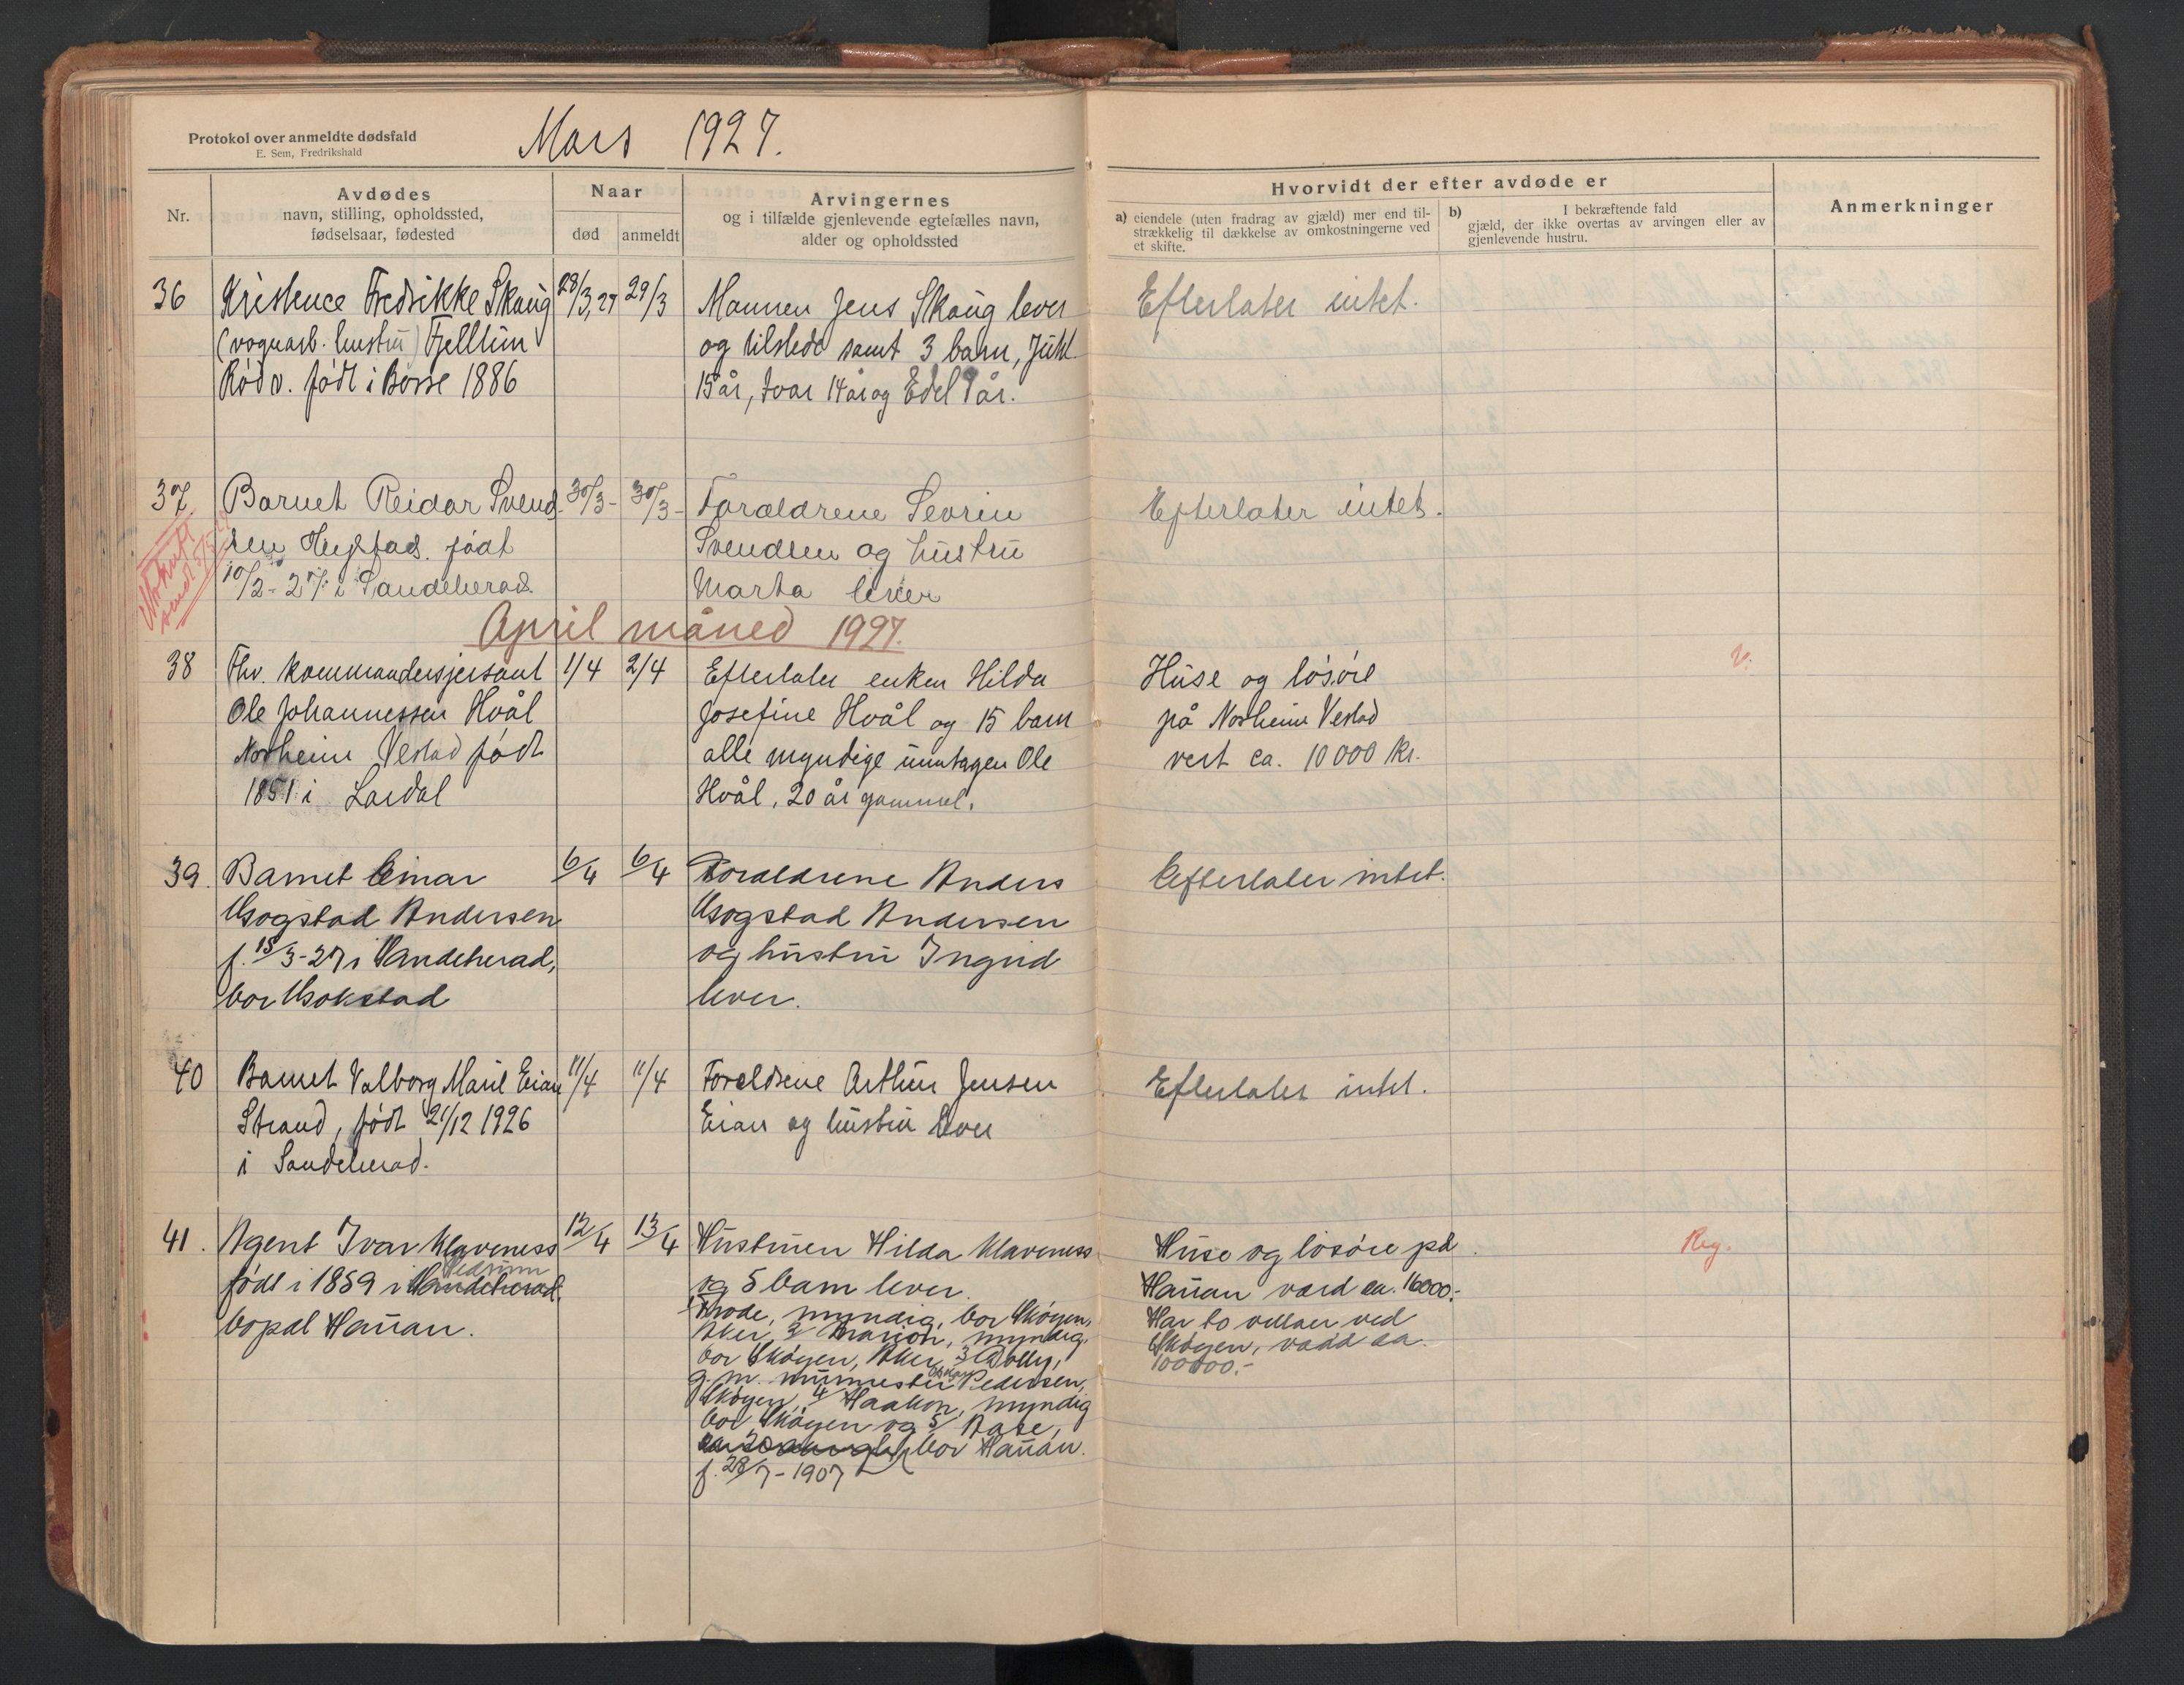 Protokol over anmeldte dødsfald
E. Sem, Fredrikshald
Mars 1927.
Nr.
Avdødes
navn, stilling, opholdssted,
fødselsaar, fødested
Naar
død
anmeldt
Arvingernes
og i tilfælde gjenlevende egtefælles navn,
alder og opholdssted
Hvorvidt der efter avdøde er
a) eiendele (uten fradrag av gjæld) mer end til-
strækkelig til dækkelse av omkostningerne ved
et skifte.
b) I bekræftende fald
gjæld, der ikke overtas av arvingen eller av
gjenlevende hustru.
Anmerkninger
36
Kristence Fredrikke Skaug
(vognarb. hustru) Fjelltun
Rød v. født i Børse 1886
28/3, 27
29/3
Mannen Jens Skaug lever
og tilstede samt 3 barn,
15 år, Ivar 14 år og Edel 9 år.
Efterlater intet.
37.
Barnet Reidar Svend-
sen Hystad. født
10/2-27 i Sandeherad.
30/3-
30/3-
Forældrene Sevrin
Svendsen og hustru
Marta lever
Efterlater intet.
April måned 1927.
38
Fhv. kommandersjersant
Ole Johannessen Hvål
Norheim Vestad født
1851 i Lardal
1/4
2/4
Efterlater enken Hilda
Josefine Hvål og 15 barn
alle myndige unntagen Ole
Hvål, 20 år gammel.
Huse og løsøre
på Norheim Vestad
vert ca. 10 000 kr.
39.
Barnet Einar
Gogstad Andersen
f. 15/3-27 i Sandeherad,
bor Gokstad
6/4
6/4
Foraldrene Anders
Gogstad Andersen
og hustru Ingrid
lever.
Efterlater intet.
40
Barnet Valborg Marie Eian
Strand, født 21/12 1926
i Sandeherad.
11/4
11/4
Foreldrene Arthur Jensen
Eian og hustru lever
Efterlater intet.
41.
Agent Ivar Klaveness
født i 1859 i Sandeherad.
bopæl Hauan.
12/4
13/4
Hustruen Hilda Klaveness
og 5 barn lever.
Throde, myndig, bor Skøyen,
Aker, 2 Marion, myndig,
bor Skøyen, Aker, 3 Dolly,
g. m. murmester Pedersen,
Skøyen, 4 Haakon, myndig
bor Skøyen og 5/ Aase,
bor Hauan.
f. 28/7-1907
Huse og løsøre på
Hauan værd ca. 16000.-
Har to villaer ved
Skøyen, værd ca.
100000.-
Reg.